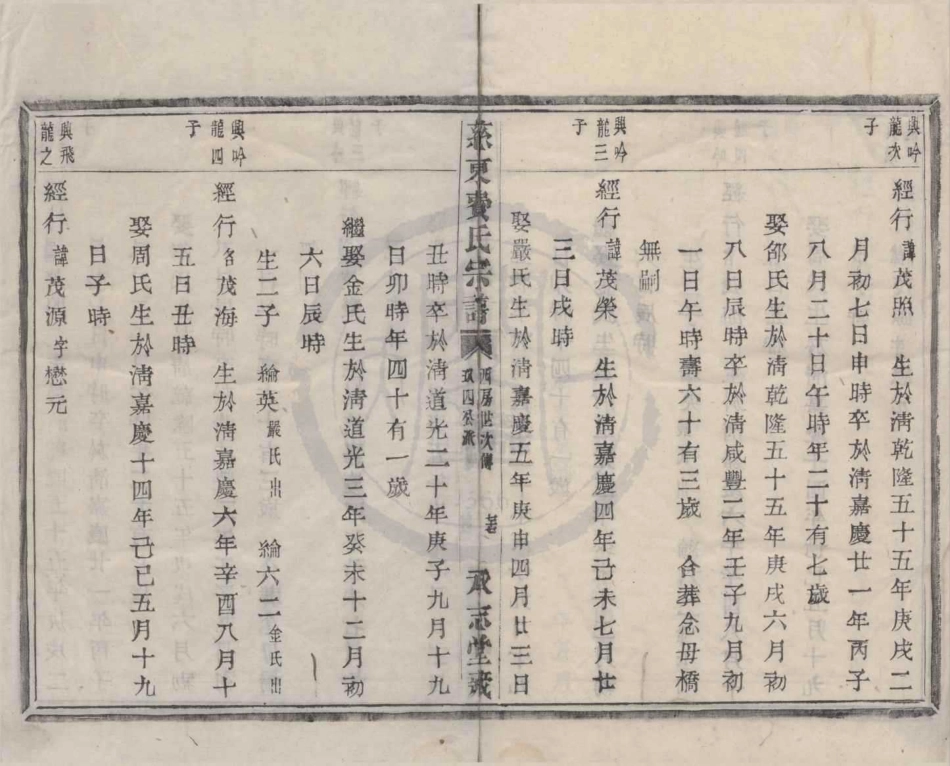 興吟
龍次
子
經行諱茂照 生於清乾隆五十五年庚戌二
月初七日申時卒於清嘉慶廿一年丙子
八月二十日午時年二十有七歲
娶邰氏生於清乾隆五十五年庚戌六月初
八日辰時卒於清咸豐二年壬子九月初
一日午時壽六十有三歲 合葬念母橋
無嗣
興吟
龍三
子
經行諱茂榮 生於清嘉慶四年己未七月廿
三日戌時
娶嚴氏生於清嘉慶五年庚申四月廿三日
慈東費氏宗譜
西房世次傳
承志堂藏
丑時卒於清道光二十年庚子九月十九
日卯時年四十有一歲
繼娶金氏生於清道光三年癸未十二月初
六日辰時
生二子 綸英嚴氏出 綸六二金氏出
興吟
龍四
子
經行名茂海 生於清嘉慶六年辛酉八月十
五日丑時
娶周氏生於清嘉慶十四年己巳五月十九
日子時
興飛
龍之
經行諱茂源字懋元